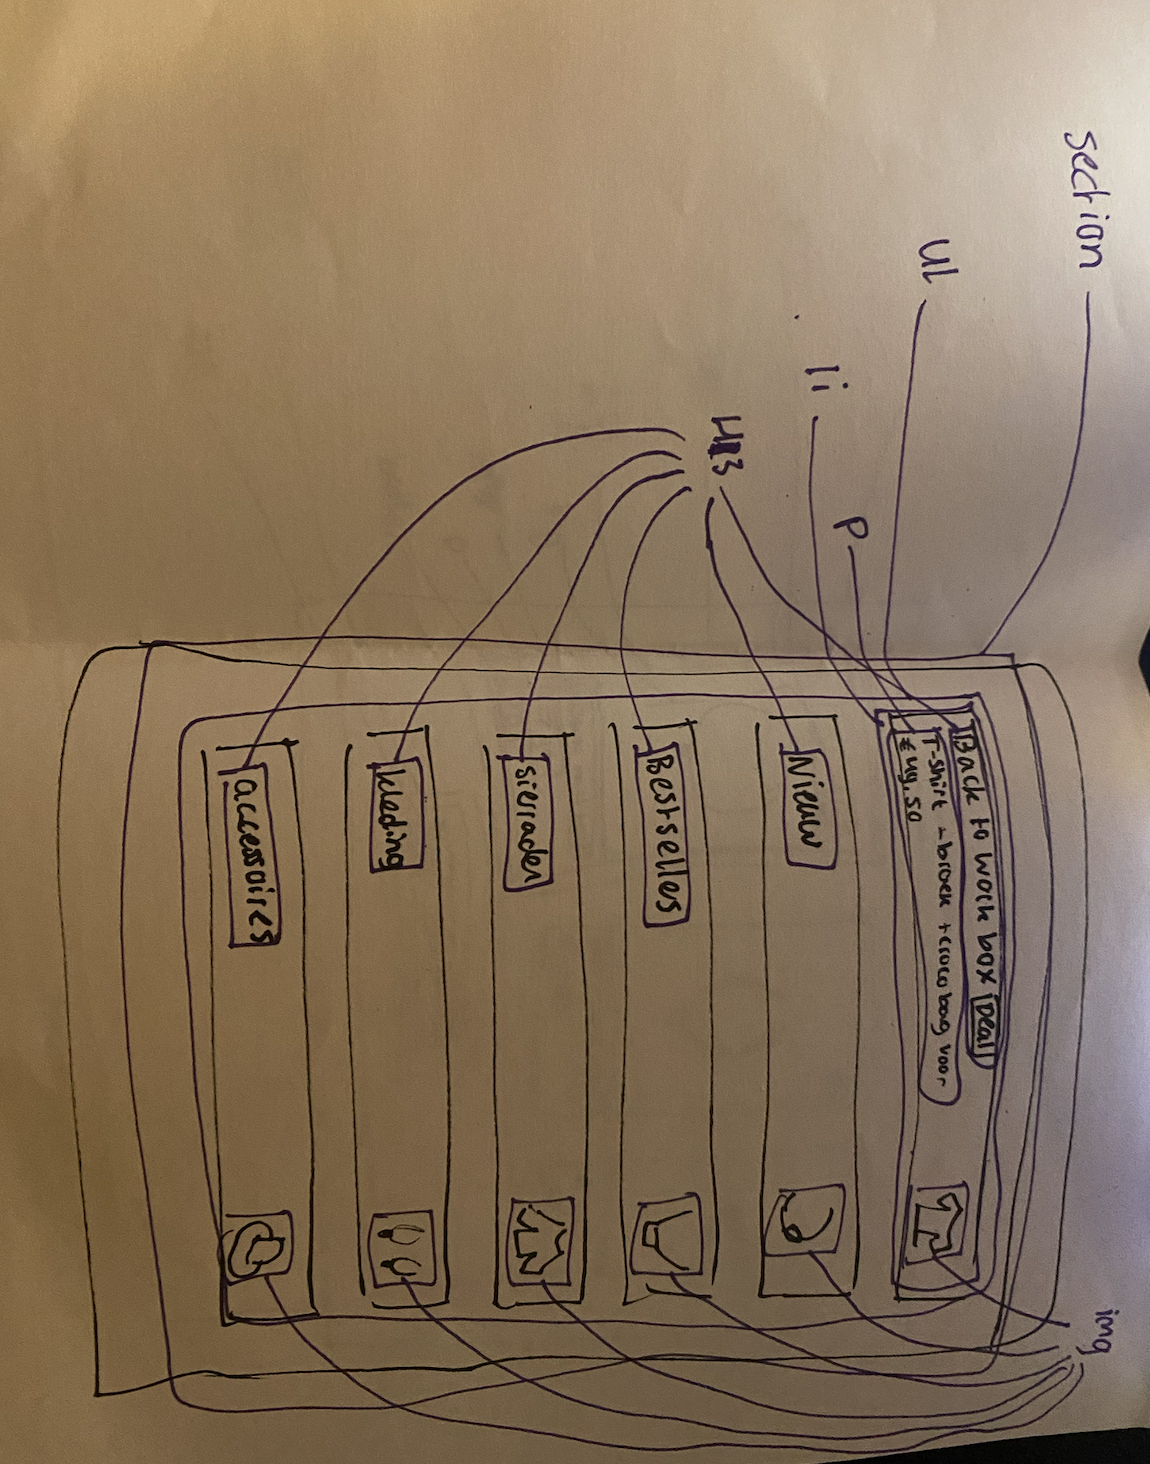 section
ul
li
p
H3
Back to work box Deal
T-shirt - broek + croco bag voor
€ 49,50
Nieuw
Bestselles
sieraden
kleding
accessoires
img